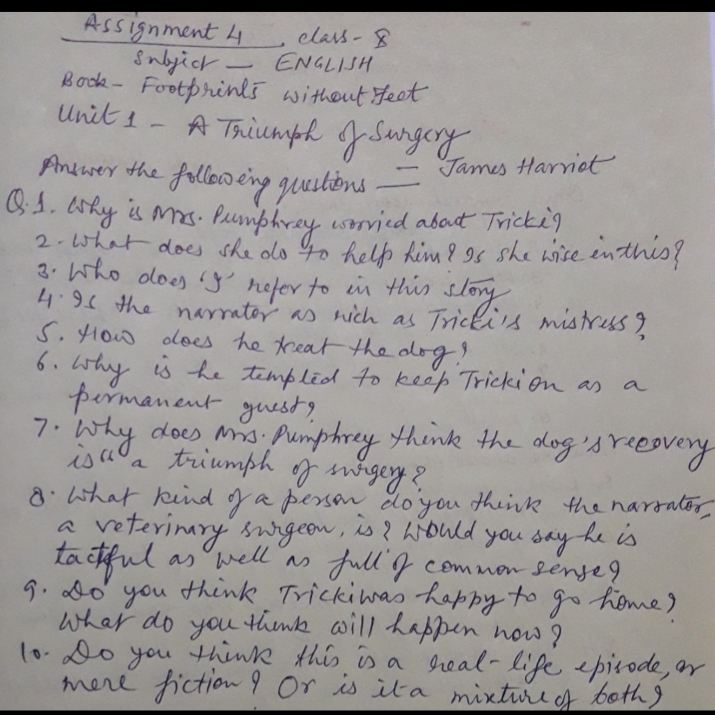 Assignment 4, class - 8
Subject - ENGLISH
Book - Footprints without Feet
Unit 1 - A Triumph of Surgery
= James Harriot
Answer the following questions -
Q.1. Why is Mrs. Pumphrey worried about Tricki?
2. What does she do to help him? Is she wise in this?
3. Who does 'I' refer to in this story
4. Is the narrator as rich as Tricki's mistress?
5. How does he treat the dog?
6. Why is he tempted to keep Tricki on as a
permanent guest?
7. Why does Mrs. Pumphrey think the dog's recovery
is "a triumph of surgery?
8. What kind of a person do you think the narrator,
a veterinary surgeon, is? Would you say he is
tactful as well as full of common sense?
9. Do you think Tricki was happy to go home?
What do you think will happen now?
10. Do you think this is a real-life episode, or
mere fiction? Or is it a mixture of both?